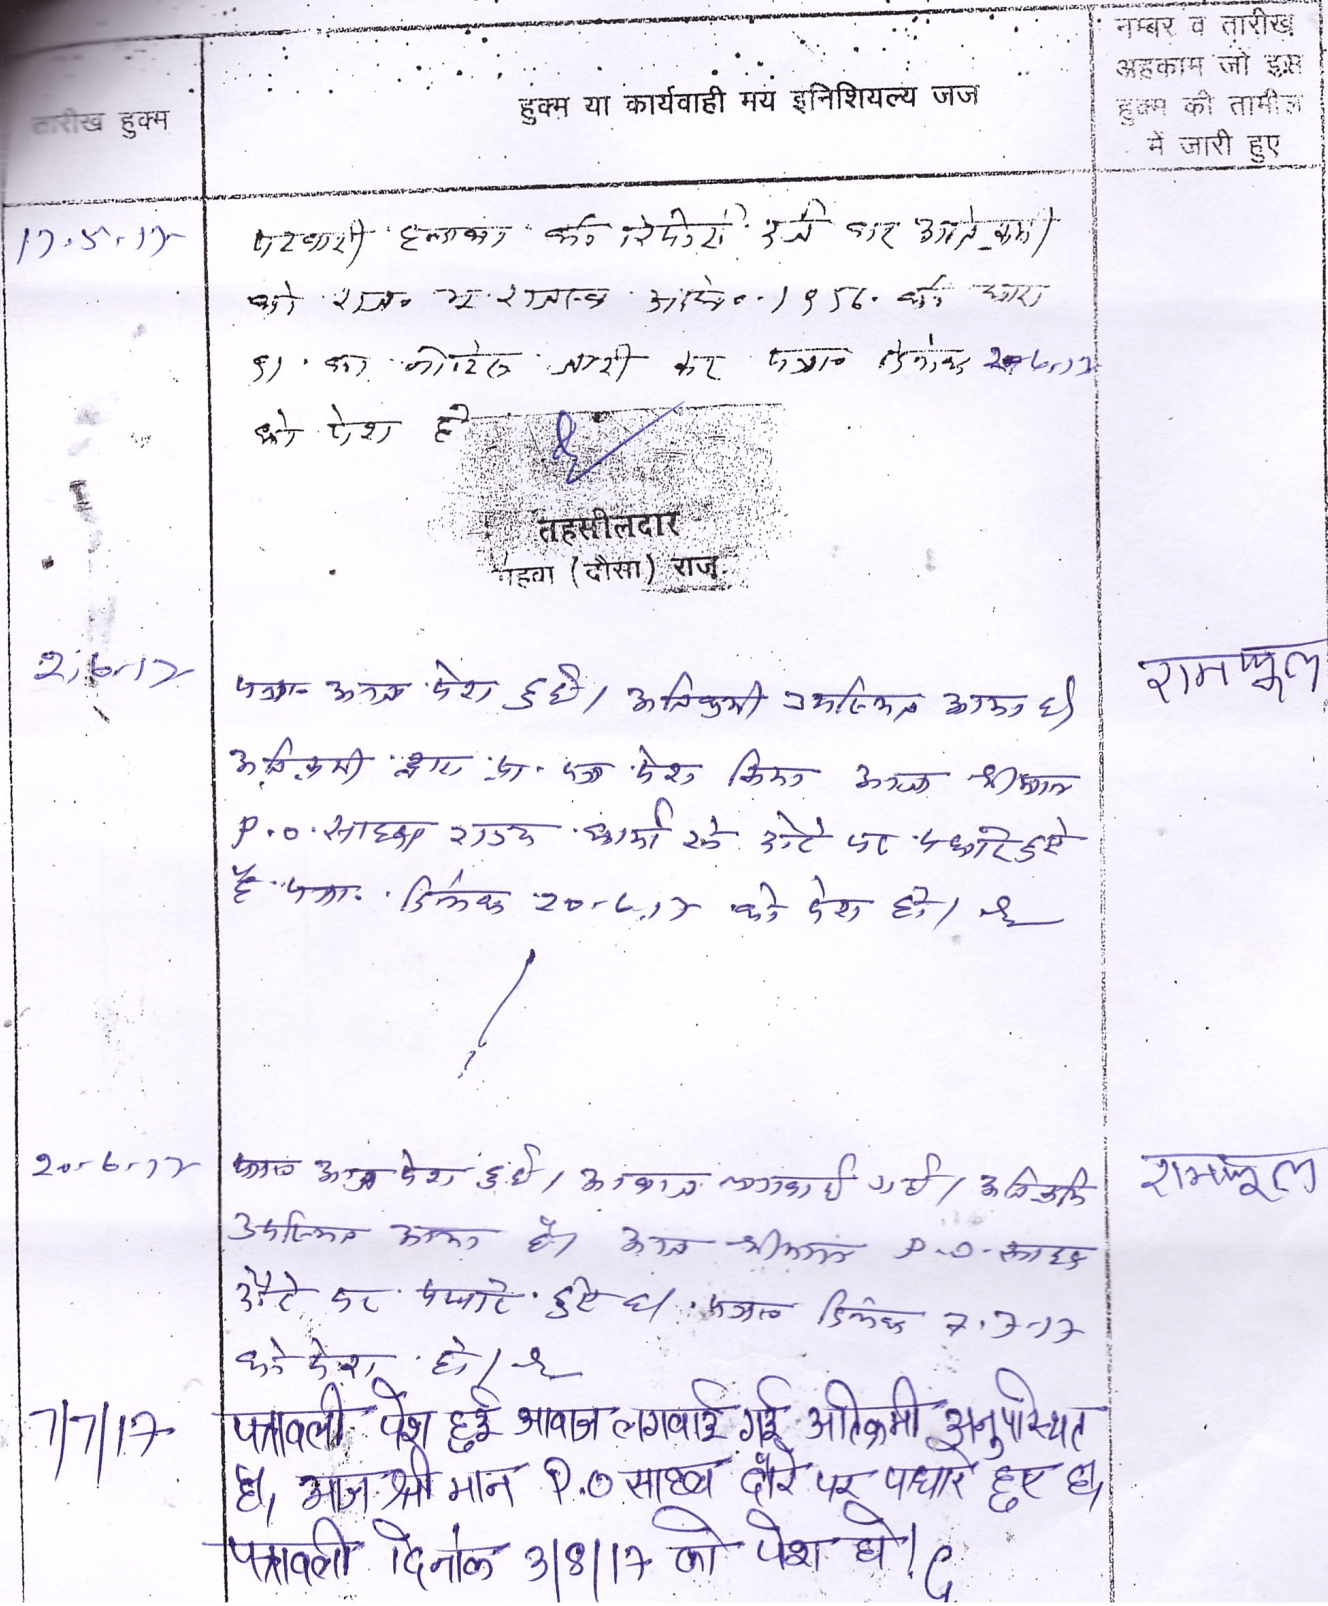 तारीख हुक्म
हुक्म या कार्यवाही मय इनिशियल्य जज
नम्बर व तारीख
अहकाम जो इस
हुक्म की तामील
में जारी हुए
17.5.17
पटवारी हल्का की रिपोर्ट दर्ज कर अतिक्रमी
को राज० भू राजस्व अधि० 1956 की धारा
91 का नोटिस जारी कर पत्रा० दिनांक 2-6-17
को पेश हो
तहसीलदार
महवा (दौसा) राज.
2.6.17
पत्रा० आज पेश हुई। अतिक्रमी उपस्थित आया है।
अतिक्रमी द्वारा प्रा. पत्र पेश किया आज श्रीमान
P.O. साहब राज्य कार्य से दौरे पर पधारे हुऐ
है पत्रा. दिनांक 20-6-17 को पेश हो।
रामफूल
20-6-17
पत्रा० आज पेश हुई। आवाज लगवाई गई। अतिक्रमी
उपस्थित आया है। आज श्रीमान P.O. साहब
दौरे पर पधारे हुऐ है। पत्रा० दिनांक 7.7.17
को पेश हो।
रामफूल
7/7/17
पत्रावली पेश हुई आवाज लगवाई गई अतिक्रमी अनुपस्थित
है, आज श्री मान P.O साहब दौरे पर पधारे हुए है,
पत्रावली दिनांक 3/8/17 को पेश हो।